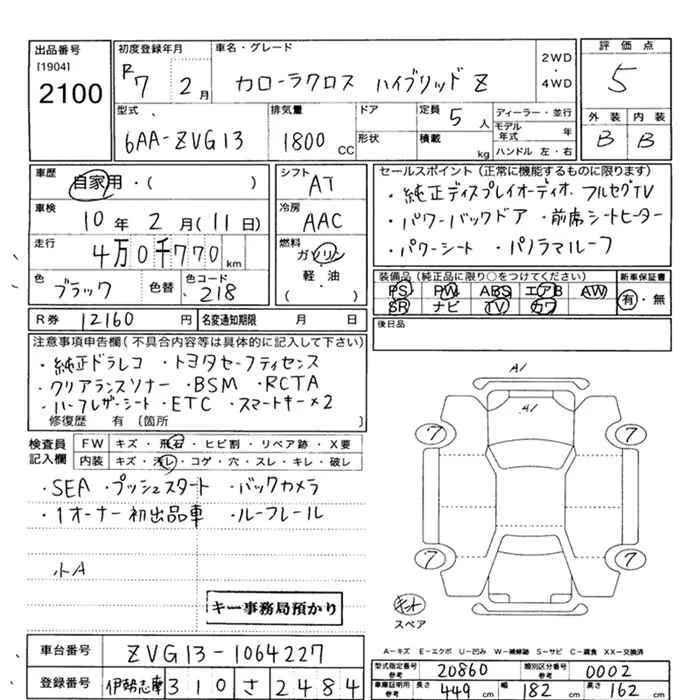 出品番号
[1904]
2100
初度登録年月
R7 2月
車名・グレード
カローラクロス ハイブリッド Z
2WD
・
4WD
評価点
5
外装 内装
B B
型式
6AA-ZVG13
排気量
1800 CC
ドア
形状
定員 5 人
積載 kg
ディーラー・並行
モデル年式 年
ハンドル 左・右
車歴
自家用・( )
車検
10年 2月 (11日)
走行
4万0千770 km
色
ブラック
色替
色コード
218
シフト
AT
冷房
AAC
燃料
ガソリン
軽・油
( )
セールスポイント(正常に機能するものに限ります)
・純正ディスプレイオーディオ・フルセグTV
・パワーバックドア ・前席シートヒーター
・パワーシート ・パノラマルーフ
装備品(純正品に限り○をつけてください)
PS PW ABS エアB AW
SR ナビ TV カワ
新車保証書
有・無
後日品
R券 12160 円
名変通知期限 月 日
注意事項申告欄(不具合内容等は具体的に記入して下さい)
・純正ドラレコ ・トヨタセーフティセンス
・クリアランスソナー ・BSM ・RCTA
・ハーフレザーシート ・ETC ・スマートキー×2
修復歴 有 〔箇所
検査員記入欄
FW キズ・飛石・ヒビ割・リペア跡・X要
内装 キズ・汚レ・コゲ・穴・スレ・キレ・破レ
・SEA ・プッシュスタート ・バックカメラ
・1オーナー初出品車 ・ルーフレール
小A
キー事務局預かり
A1
A1
7 7
7 7
キット
スペア
A-キズ E-エクボ U-凹み W-補修跡 S-サビ C-腐食 XX-交換済
車台番号 ZVG13-1064227
登録番号 伊勢志摩 310 さ 2484
型式指定番号
参考
20860
類別区分番号
参考
0002
車庫証明用
参考
長さ 449 cm 幅 182 cm 高さ 162 cm